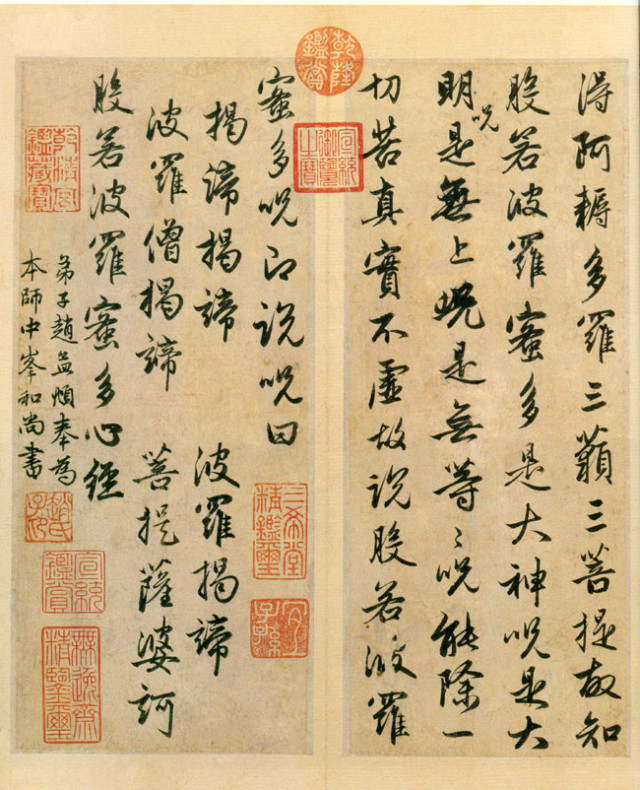 乾隆鑑賞
宣統御覽之寶
得阿耨多羅三藐三菩提故知
般若波羅蜜多是大神呪是大
明呪是無上呪是无等〻呪能除一
切苦真實不虛故說般若波羅
蜜多呪即說呪曰
三希堂精鑑璽
宜子孫
揭諦揭諦 波羅揭諦
波羅僧揭諦 菩提薩婆訶
般若波羅蜜多心經
弟子趙孟頫奉為
本師中峯和尚書
乾清宮鑑藏寶
宣統鑑賞
無逸齋精鑑璽